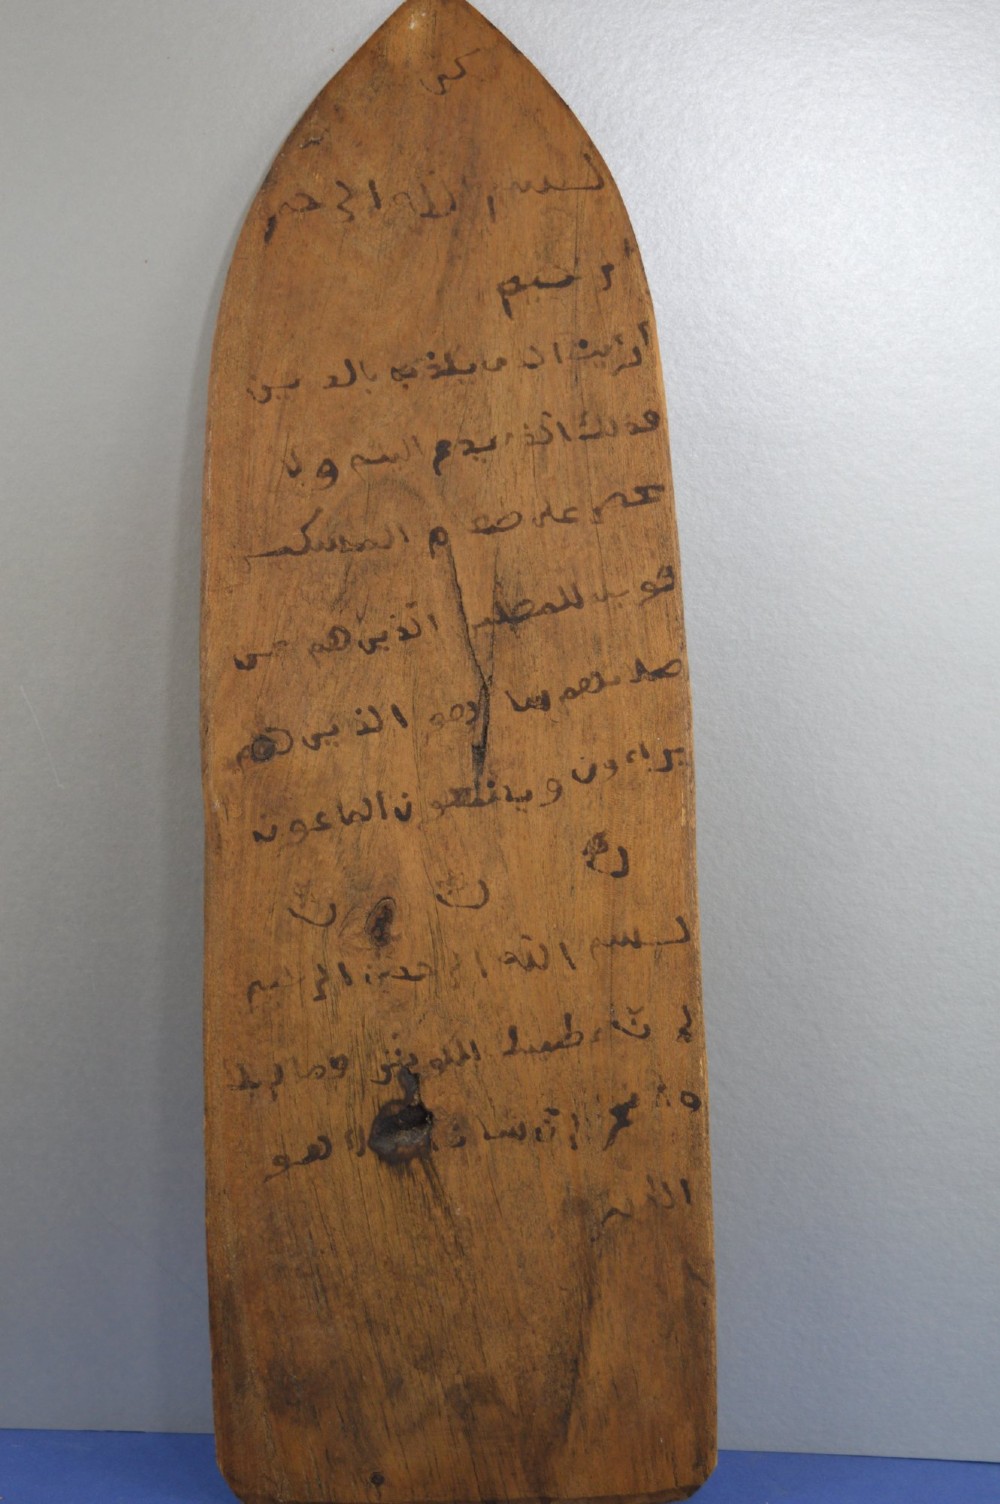 بسم الله الرحم
الرحيم
ارءيت الذى يكذب بالدين
فذلك الذى يدع اليتيم ولا
يحض على طعام المسكين
فويل للمصلين الذين هم عن
صلاتهم ساهو الذين هم
يراءون ويمنعون الماعون
بسم الله الرحمن الرحيم
الكوثر فصل
وانحر ان شانئك هو
الابتر